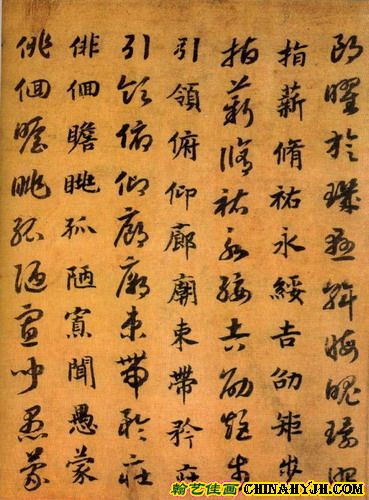 朗曜旋璣懸斡晦魄環照
指薪脩祐永綏吉劭矩步
指薪脩祐永綏吉劭矩步
引領俯仰廊廟束帶矜莊
引領俯仰廊廟束帶矜莊
徘徊瞻眺孤陋寡聞愚蒙
徘徊瞻眺孤陋寡聞愚蒙
翰艺佳画
CHINAHYJH.COM